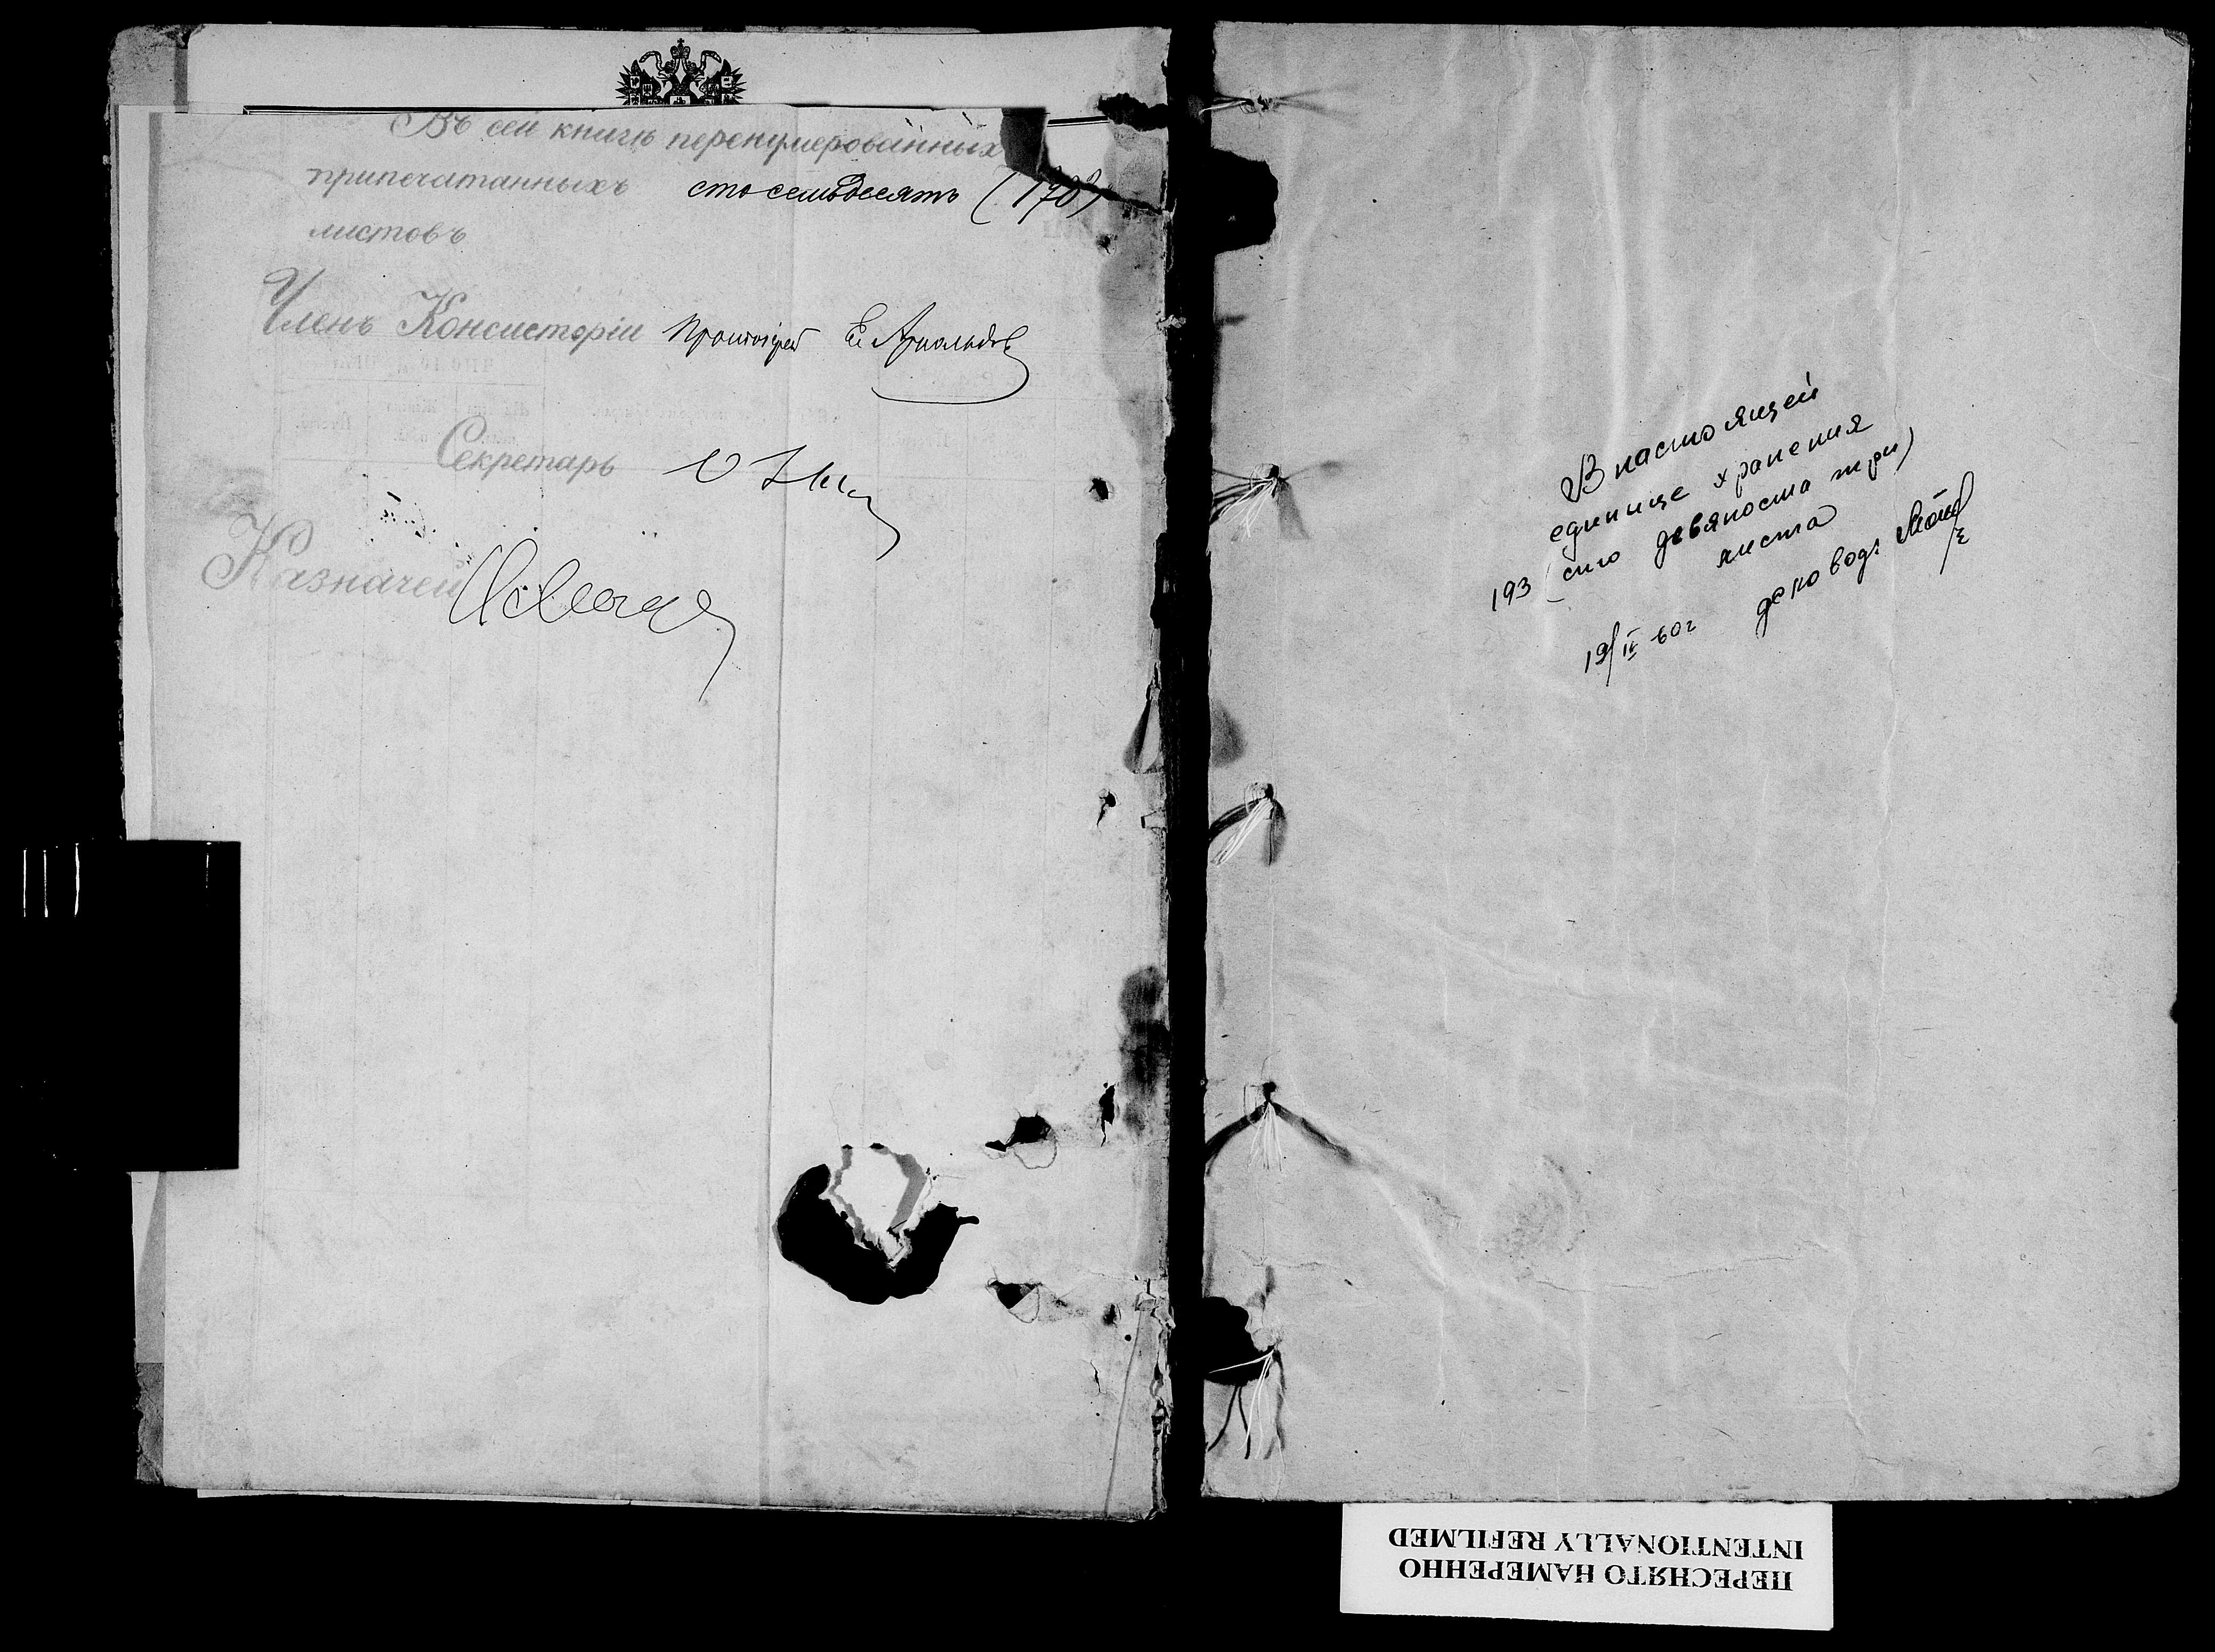 Въ сей книгѣ перенумерованныхъ
припечатанныхъ сто семьдесятъ (170)
листовъ
Членъ Консисторіи Протоіерей Е. Арнольдов
Секретарь
Казначей
В настоящей
единице хранения
193 (сто девяноста три)
листа
19/II 60г деловод:
ПЕРЕСНЯТО НАМЕРЕННО
INTENTIONALLY REFILMED